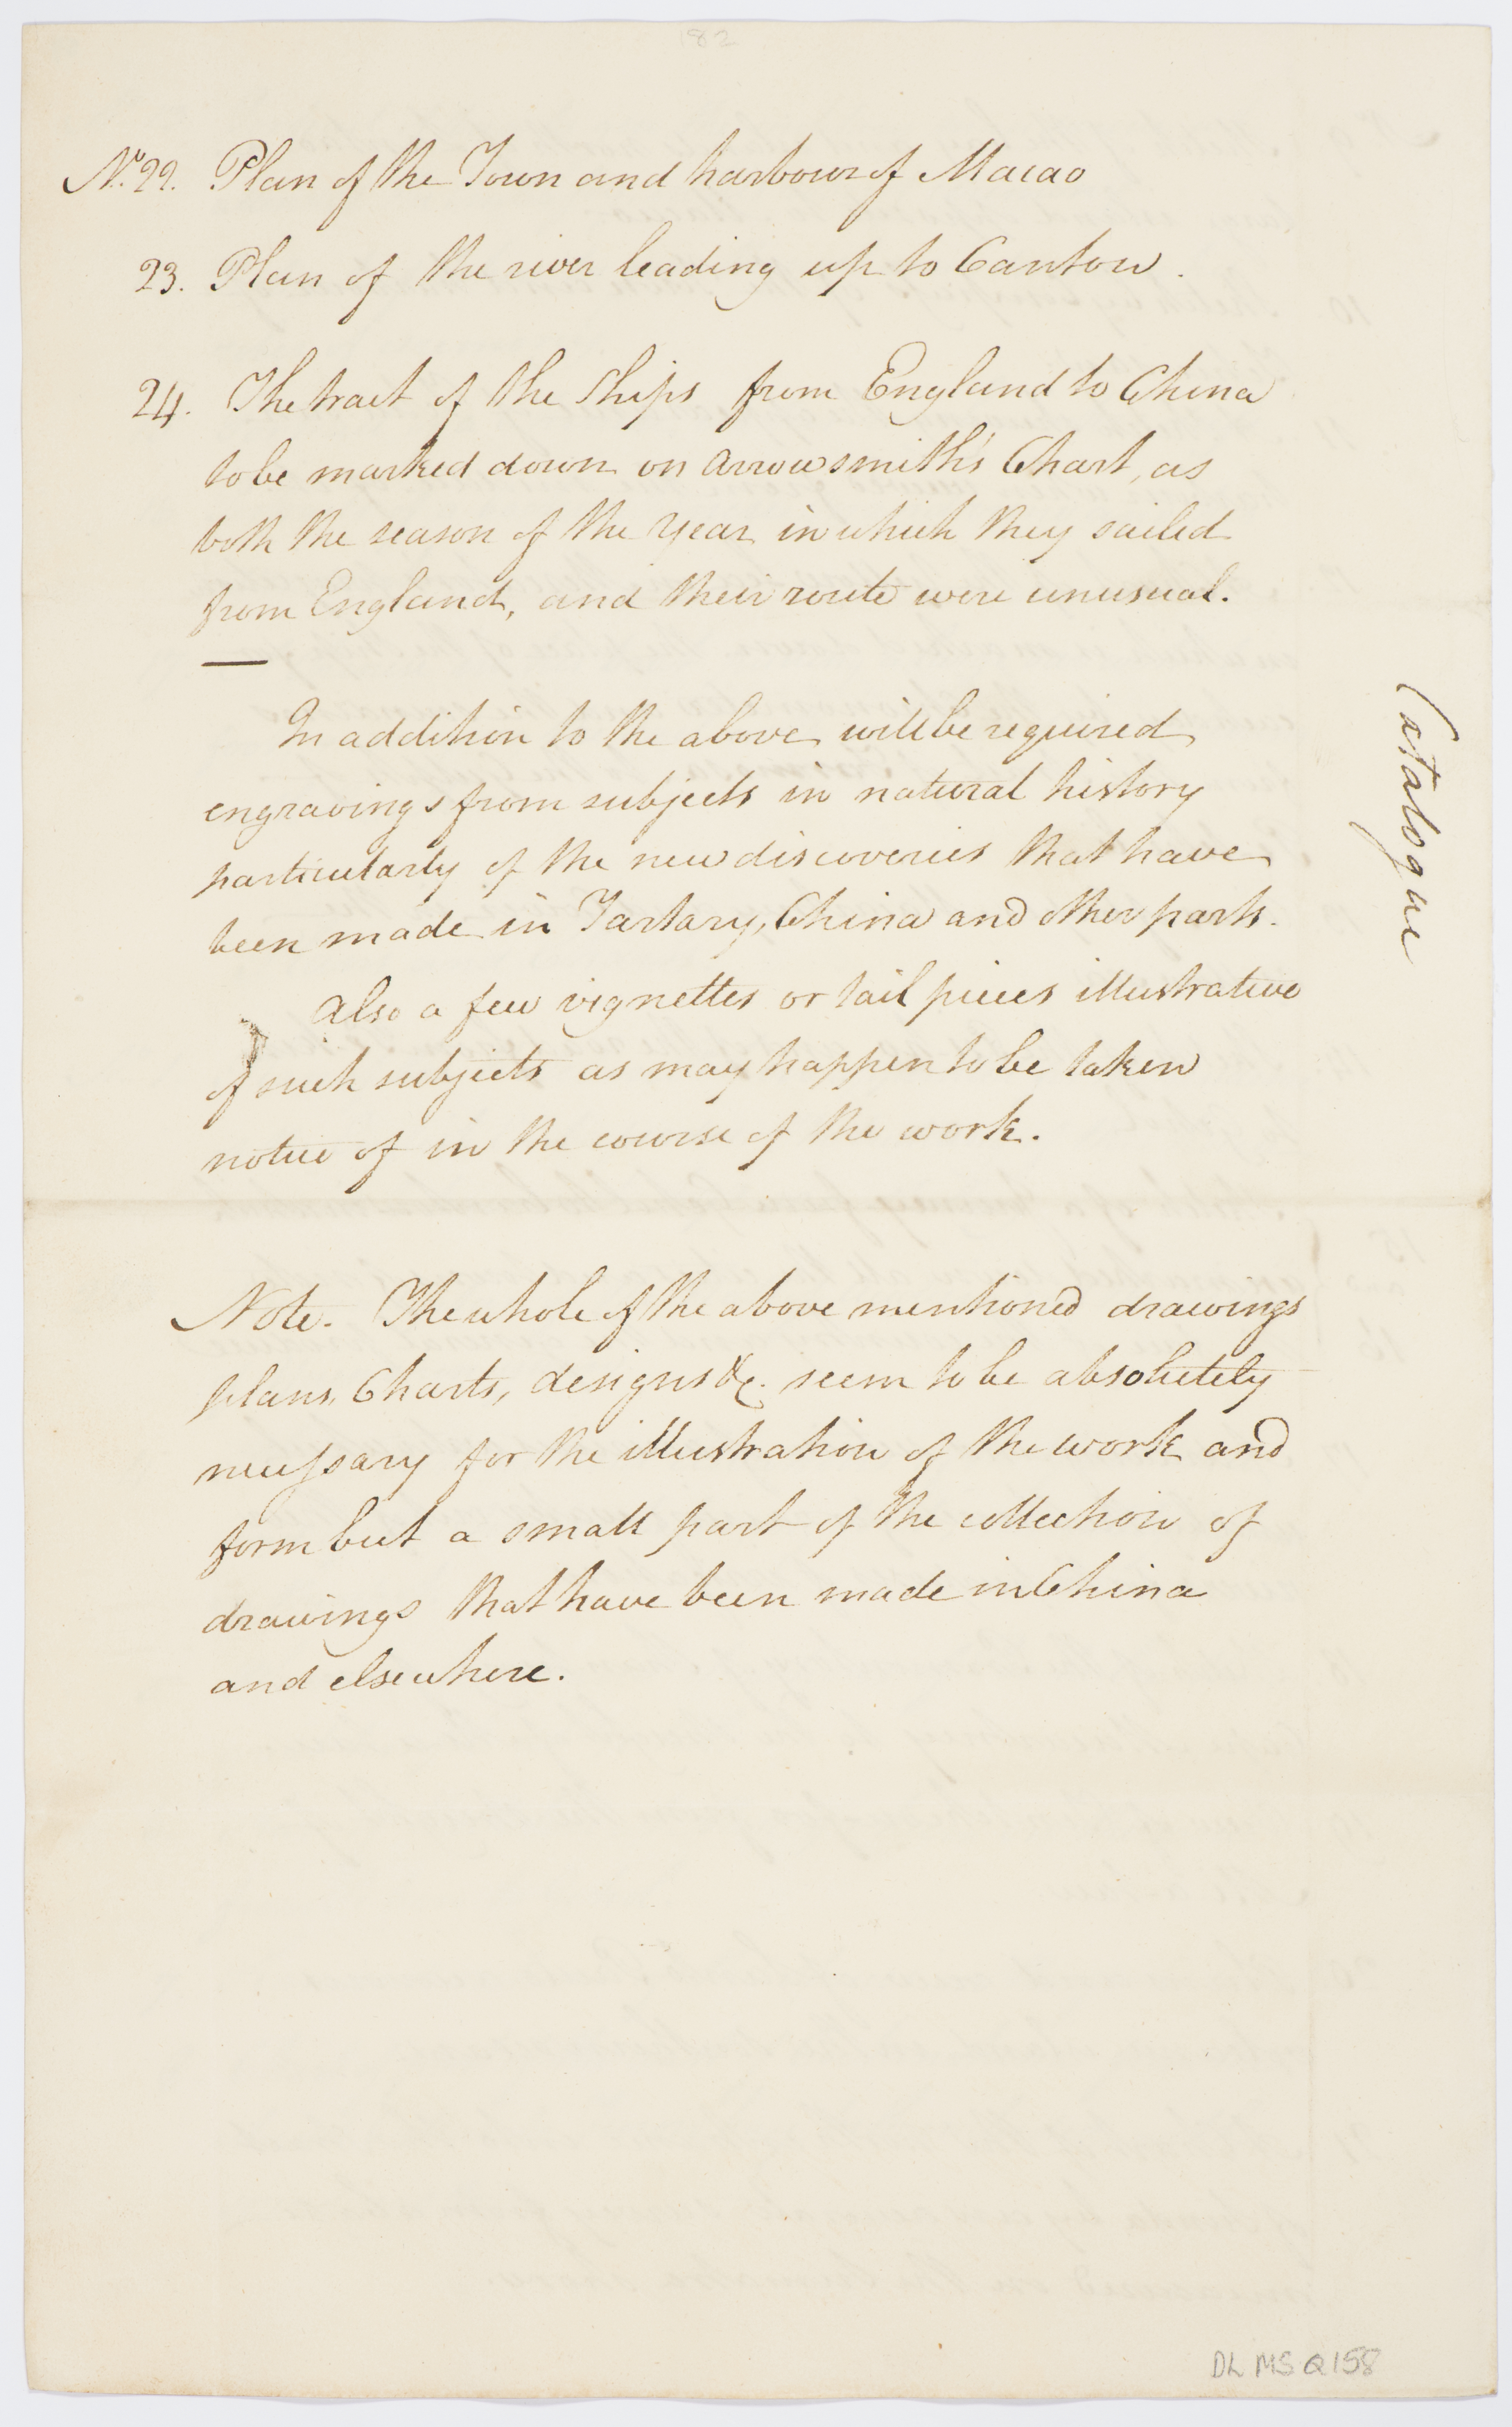 82
No. 22. Plan of the Town and harbour of Macao
23. Plan of the river leading up to Canton.
24. The tract of the Ships from England to China
to be marked down on Arrowsmith's Chart, as
both the season of the Year in which they sailed
from England, and their route were unusual.
In addition to the above will be required
engravings from subjects in natural history
particularly of the new discoveries that have
been made in Tartary, China and other parts.
Also a few vignettes or tail pieces illustrative
of such subjects as may happen to be taken
notice of in the course of the work.
Note. The whole of the above mentioned drawings
plans, Charts, designs &c. seem to be absolutely
necessary for the illustration of the work and
form but a small part of the collection of
drawings that have been made in China
and elsewhere.
Catalogue
DL MS Q158